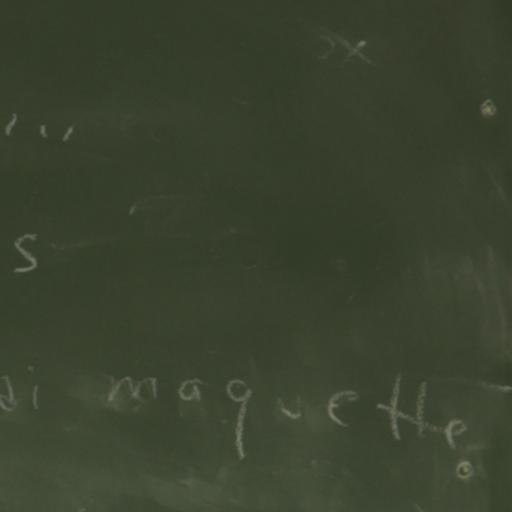 s
di maquette